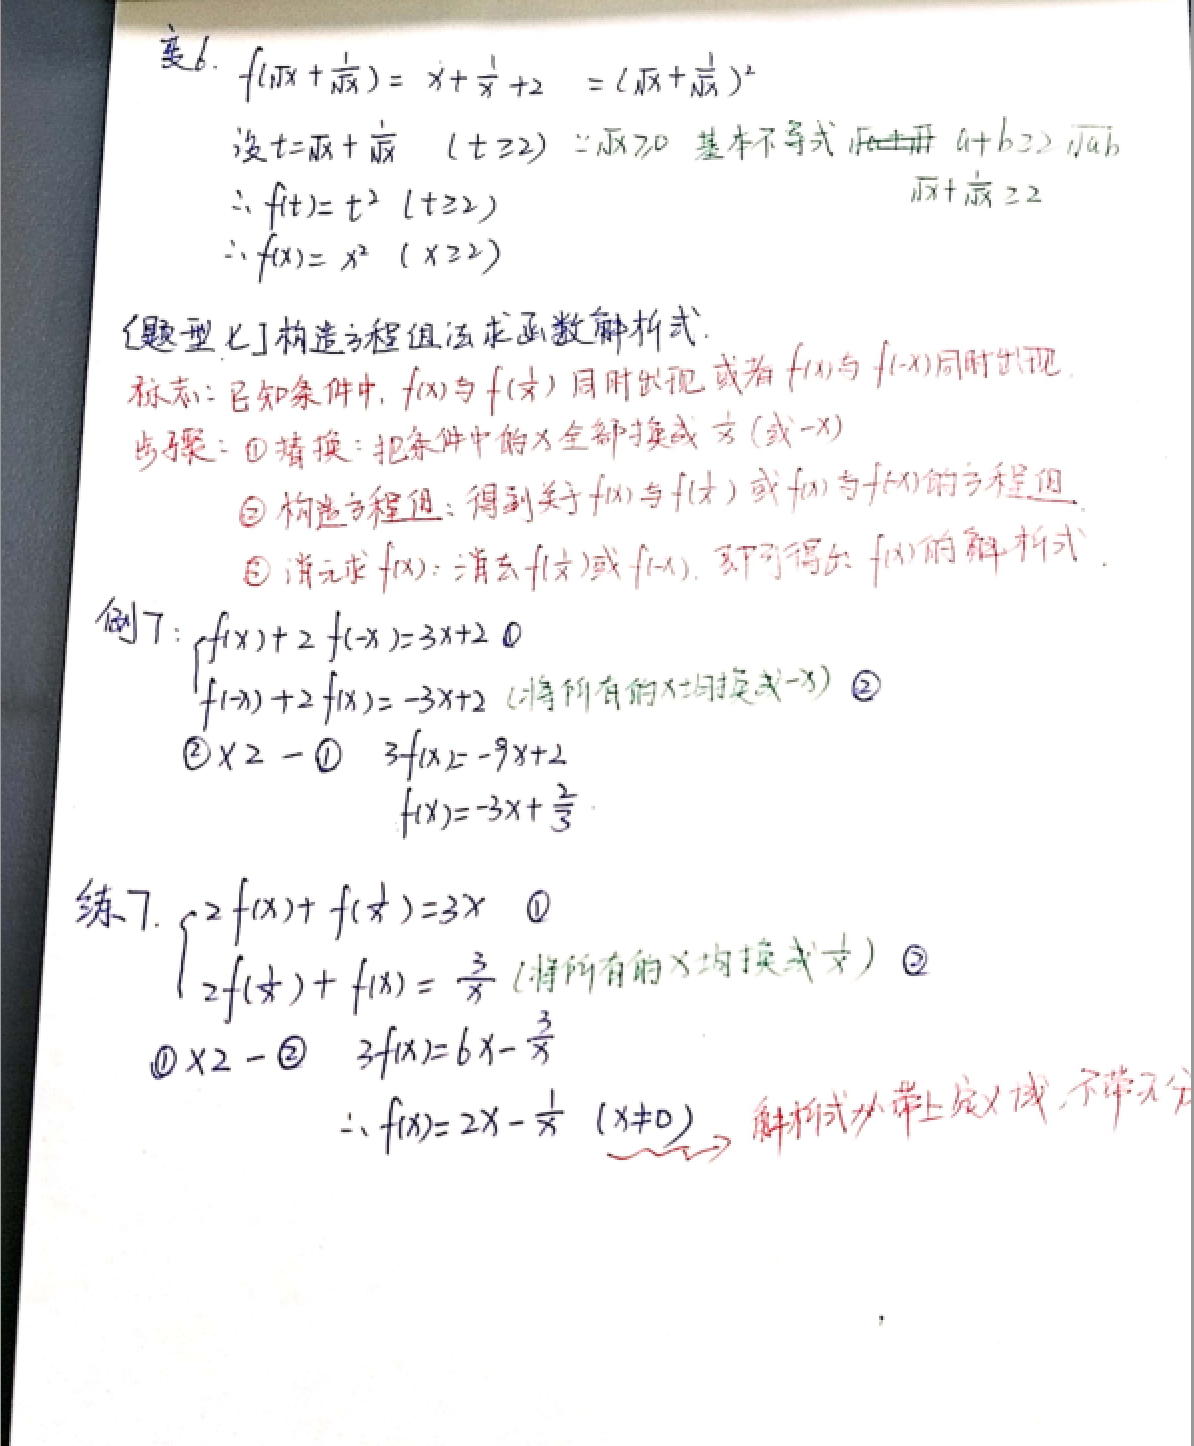 变6. f(√x + 1/√x) = x + 1/x + 2 = (√x + 1/√x)²
设t=√x + 1/√x (t≥2) ∵√x≥0 基本不等式 a+b≥2√ab
√x + 1/√x ≥2
∴ f(t)= t² (t≥2)
∴ f(x)= x² (x≥2)
[题型七]构造方程组法求函数解析式.
标志:已知条件中, f(x)与f(1/x)同时出现 或者 f(x)与 f(-x)同时出现.
步骤: ①替换: 把条件中的x全部换成 1/x (或-x)
② 构造方程组: 得到关于f(x)与f(1/x) 或 f(x)与f(-x)的方程组.
③ 消元求f(x): 消去f(1/x)或 f(-x), 即可得出 f(x)的解析式.
例7: f(x)+2f(-x)=3x+2 ①
f(-x)+2f(x)= -3x+2 (将所有的x均换成-x) ②
②×2-① 3f(x)= -9x+2
f(x)=-3x+2/3.
练7. 2f(x)+f(1/x)=3x ①
2f(1/x)+f(x)= 3/x (将所有的x均换成1/x) ②
①×2-② 3f(x)=6x-3/x
∴ f(x)=2x-1/x (x≠0) 解析式必带上定义域,不带不分